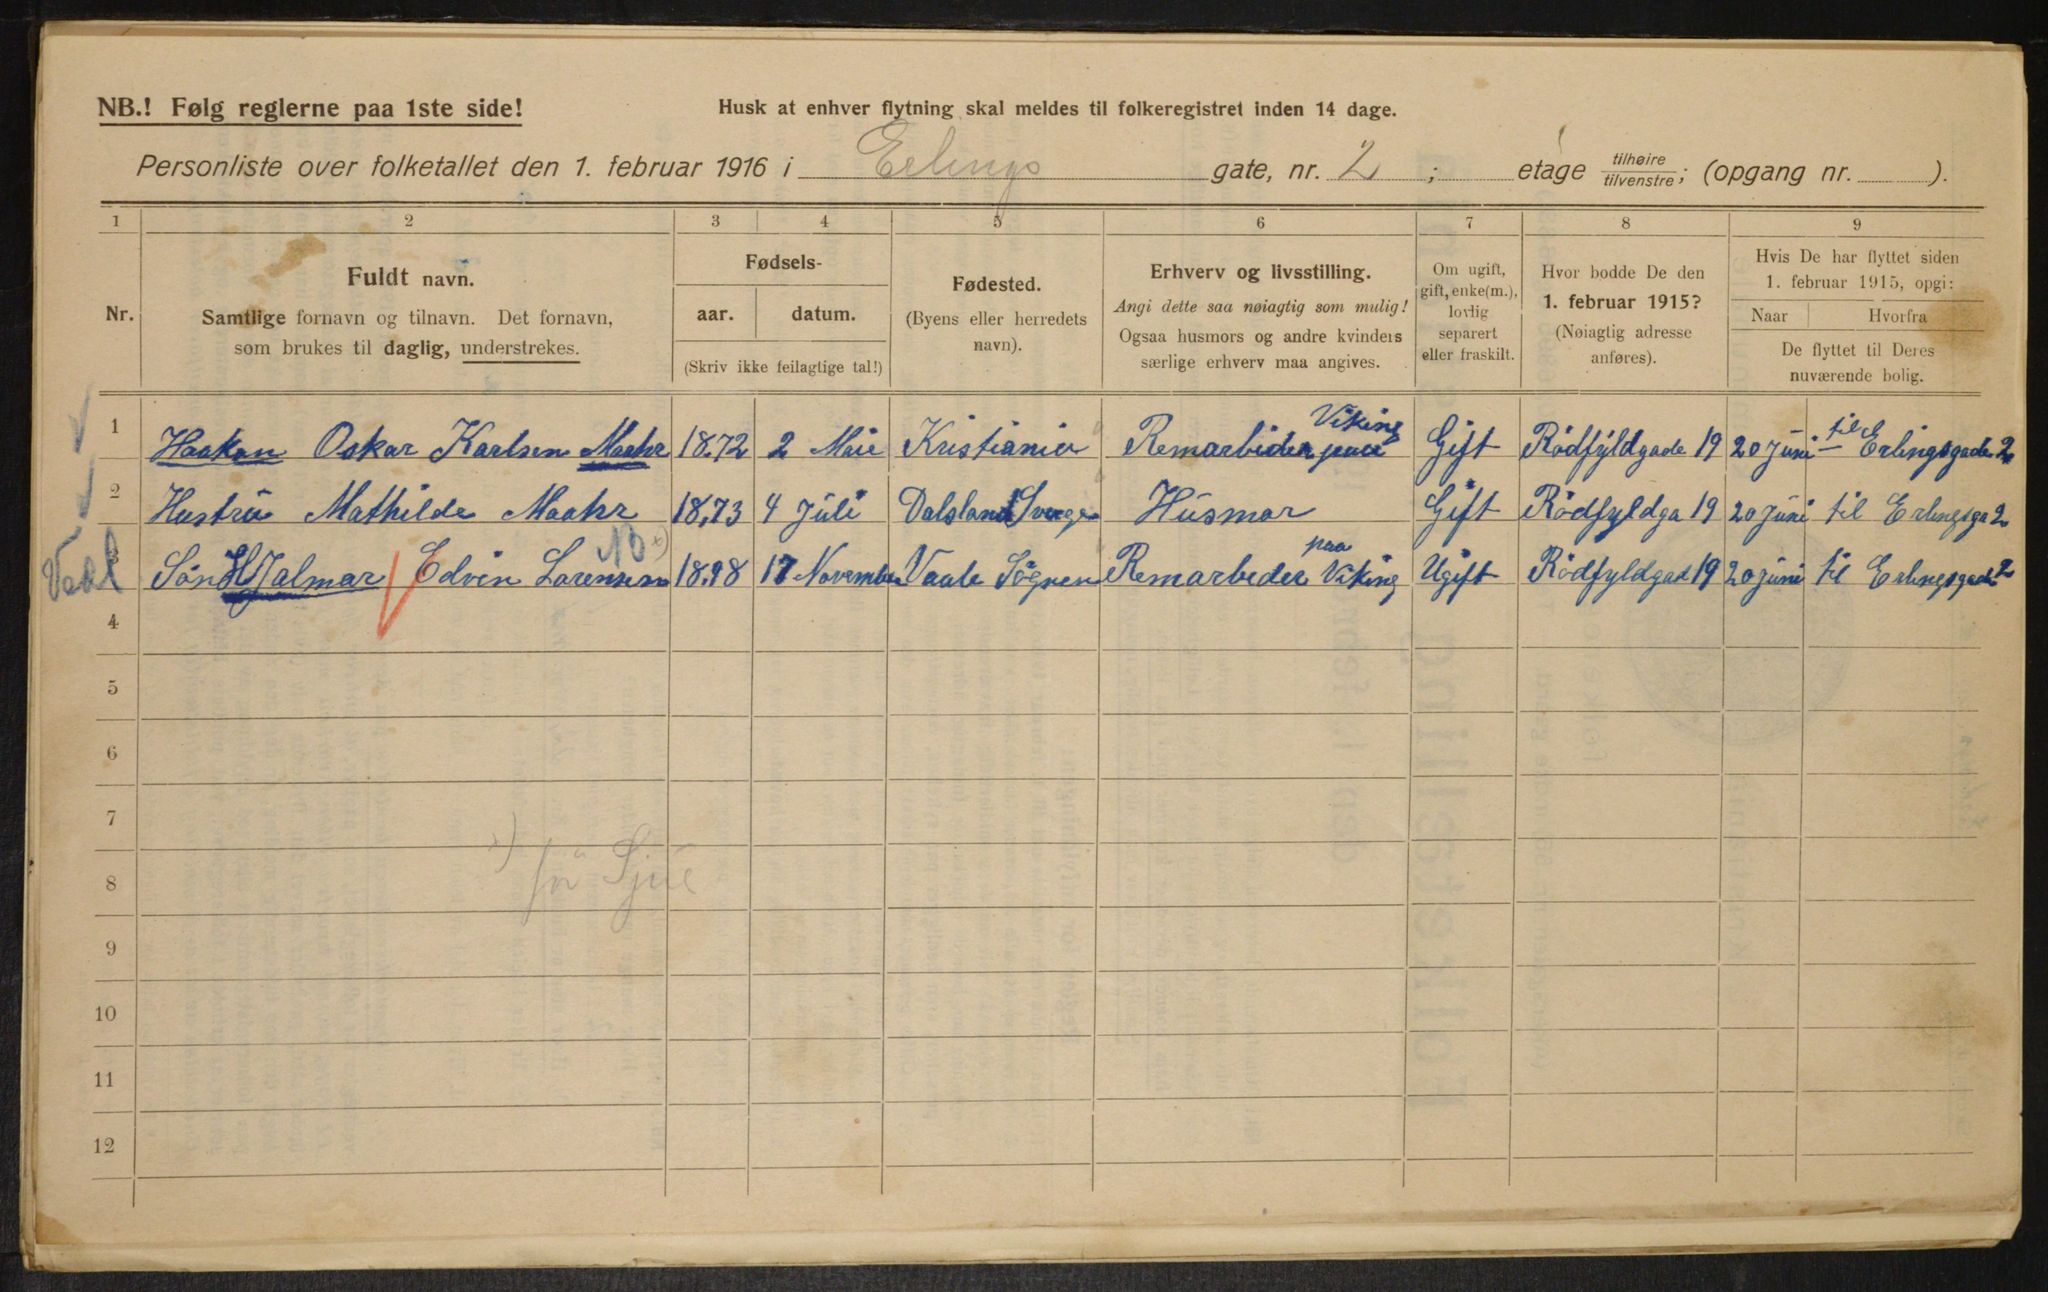 NB.! Følg reglerne paa 1ste side!
Husk at enhver flytning skal meldes til folkeregistret inden 14 dage.
Personliste over folketallet den 1. februar 1916 i Erlings gate, nr. 2 ; etage tilhøire tilvenstre; (opgang nr. ).
1 2 3 4 5 6 7 8 9
Nr.
Fuldt navn.
Samtlige fornavn og tilnavn. Det fornavn,
som brukes til daglig, understrekes.
Fødsels-
aar. datum.
(Skriv ikke feilagtige tal!)
Fødested.
(Byens eller herredets
navn).
Erhverv og livsstilling.
Angi dette saa nøiagtig som mulig!
Ogsaa husmors og andre kvinders
særlige erhverv maa angives.
Om ugift,
gift, enke(m.),
lovlig
separert
eller fraskilt.
Hvor bodde De den
1. februar 1915?
(Nøiagtig adresse
anføres).
Hvis De har flyttet siden
1. februar 1915, opgi:
Naar Hvorfra
De flyttet til Deres
nuværende bolig.
1 Haakon Oskar Karlsen Maahr 18.72 2 Maie Kristiania Remarbider Viking Gift Rödfyldgade 19 20 juni til Erlingsgade 2
2 Hustrü Mathilde Maahr 18,73 4 Jüli Dalsland Sverge Hüsmor Gift Rödfyldga 19 20 juni til Erlingsga 2
3 Sön Hjalmar Edvin Lorensen x) 18.98 17 November Vaale Sögnen Remarbeder paa Viking Ugift Rödfyldgad 19 20 juni til Erlingsgade 2
4
5
6
7
x)
8
9
10
11
12